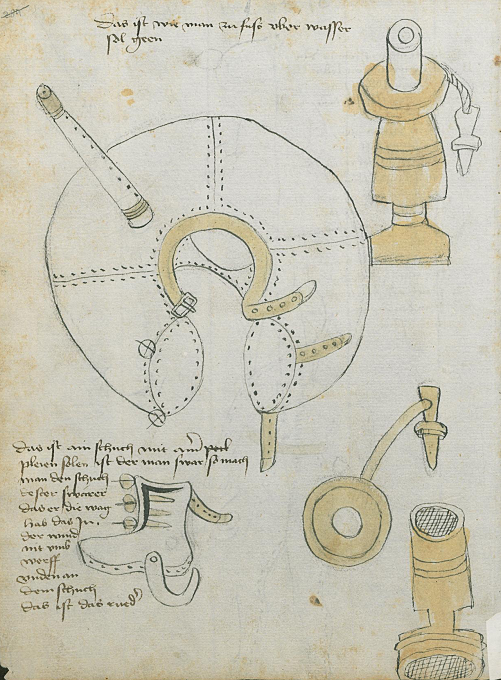 das ist wie man zu fuss vber wasser
sol geen
das ist ain schuch mit ainer
pleien solen ist der man swar so mach
man den schuch
dester swarer
das er die wag
hab das In
der wind
nit vmb
werff
vnden an
dem schuch
das ist das rueder